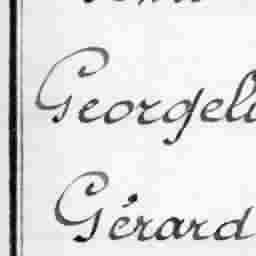 Georgel
Gérard